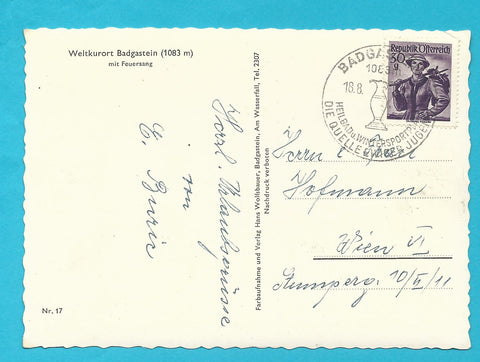 Weltkurort Badgastein (1083 m)
mit Feuersang
Herzl. Urlaubsgrüsse
von
Nr. 17
Farbaufnahme und Verlag Hans Wolfsbauer, Badgastein, Am Wasserfall, Tel. 2307
Nachdruck verboten
BADGASTEIN
1083
18.8.
HEILBAD u. WINTERSPORT
DIE QUELLE EWIGER JUGEND
Republik Österreich
30 g
Herrn
Hofmann
Wien VI
Stumperg. 10/II/11